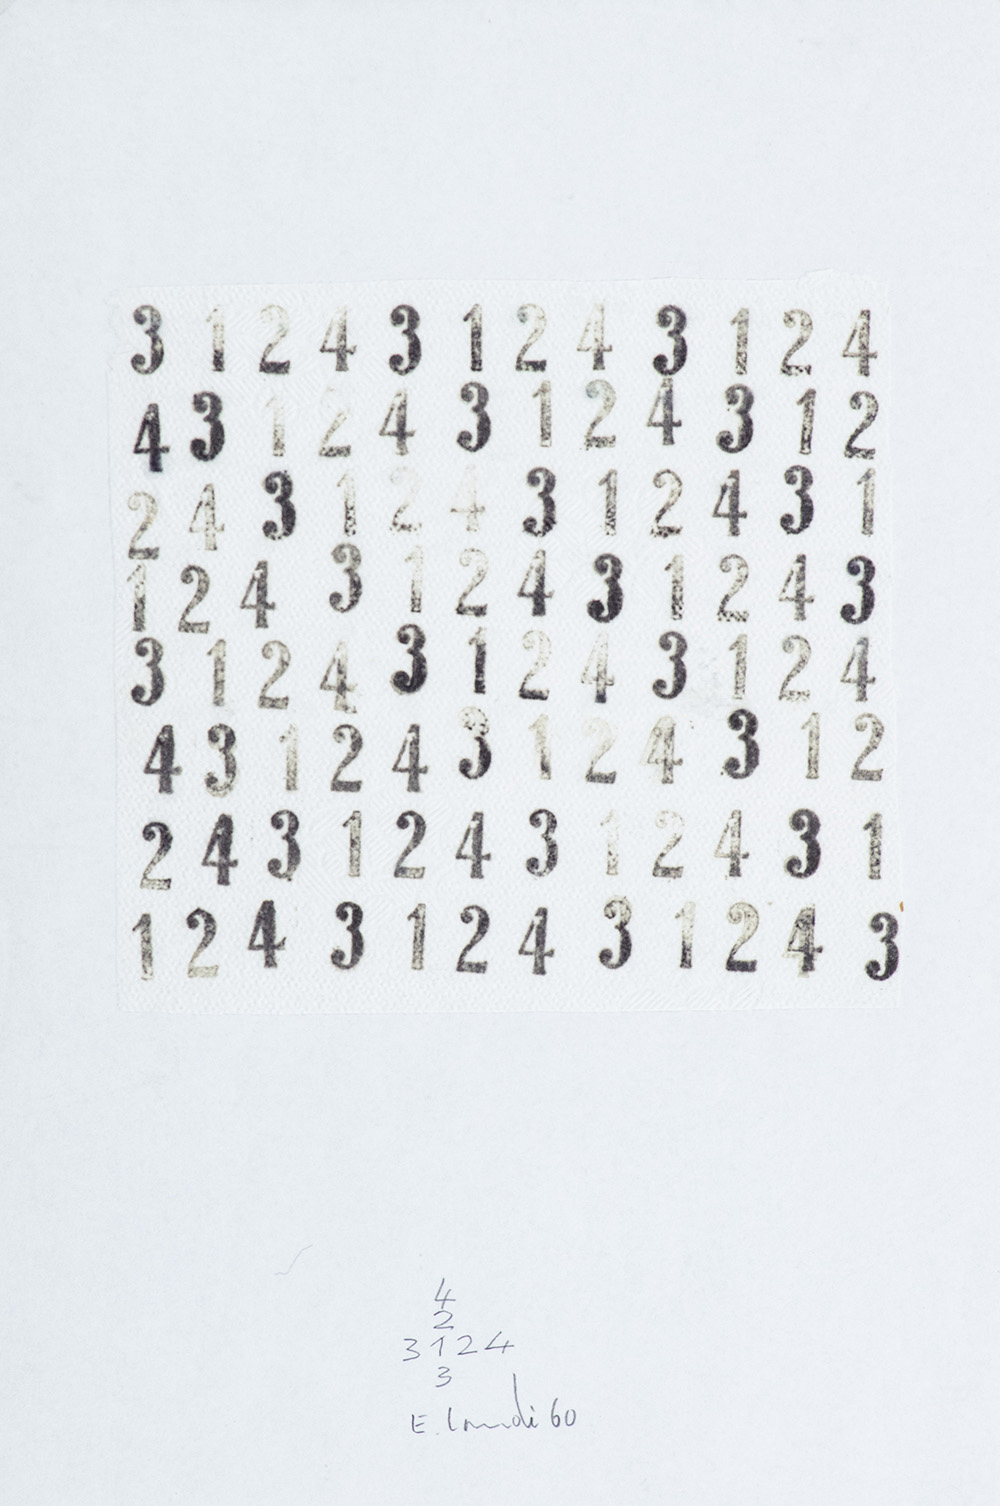 3 1 2 4 3 1 2 4 3 1 2 4
4 3 1 2 4 3 1 2 4 3 1 2
2 4 3 1 2 4 3 1 2 4 3 1
1 2 4 3 1 2 4 3 1 2 4 3
3 1 2 4 3 1 2 4 3 1 2 4
4 3 1 2 4 3 1 2 4 3 1 2
2 4 3 1 2 4 3 1 2 4 3 1
1 2 4 3 1 2 4 3 1 2 4 3
4
2
3124
3
E. 60